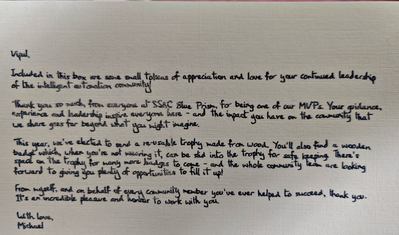 Vipul,
Included in this box are some small tokens of appreciation and love for your continued leadership
of the intelligent automation community!
Thank you so much, from everyone at SS&C Blue Prism, for being one of our MVPs. Your guidance,
experience and leadership inspire everyone here - and the impact you have on the community that
we share goes far beyond what you might imagine.
This year, we've elected to send a re-usable trophy made from wood. You'll also find a wooden
badge which, when you're not wearing it, can be slid into the trophy for safe keeping. There's
space on the trophy for many more badges to come - and the whole community team are looking
forward to giving you plenty of opportunities to fill it up!
From myself, and on behalf of every community member you've ever helped to succeed, thank you.
It's an incredible pleasure and honour to work with you.
With love,
Michael